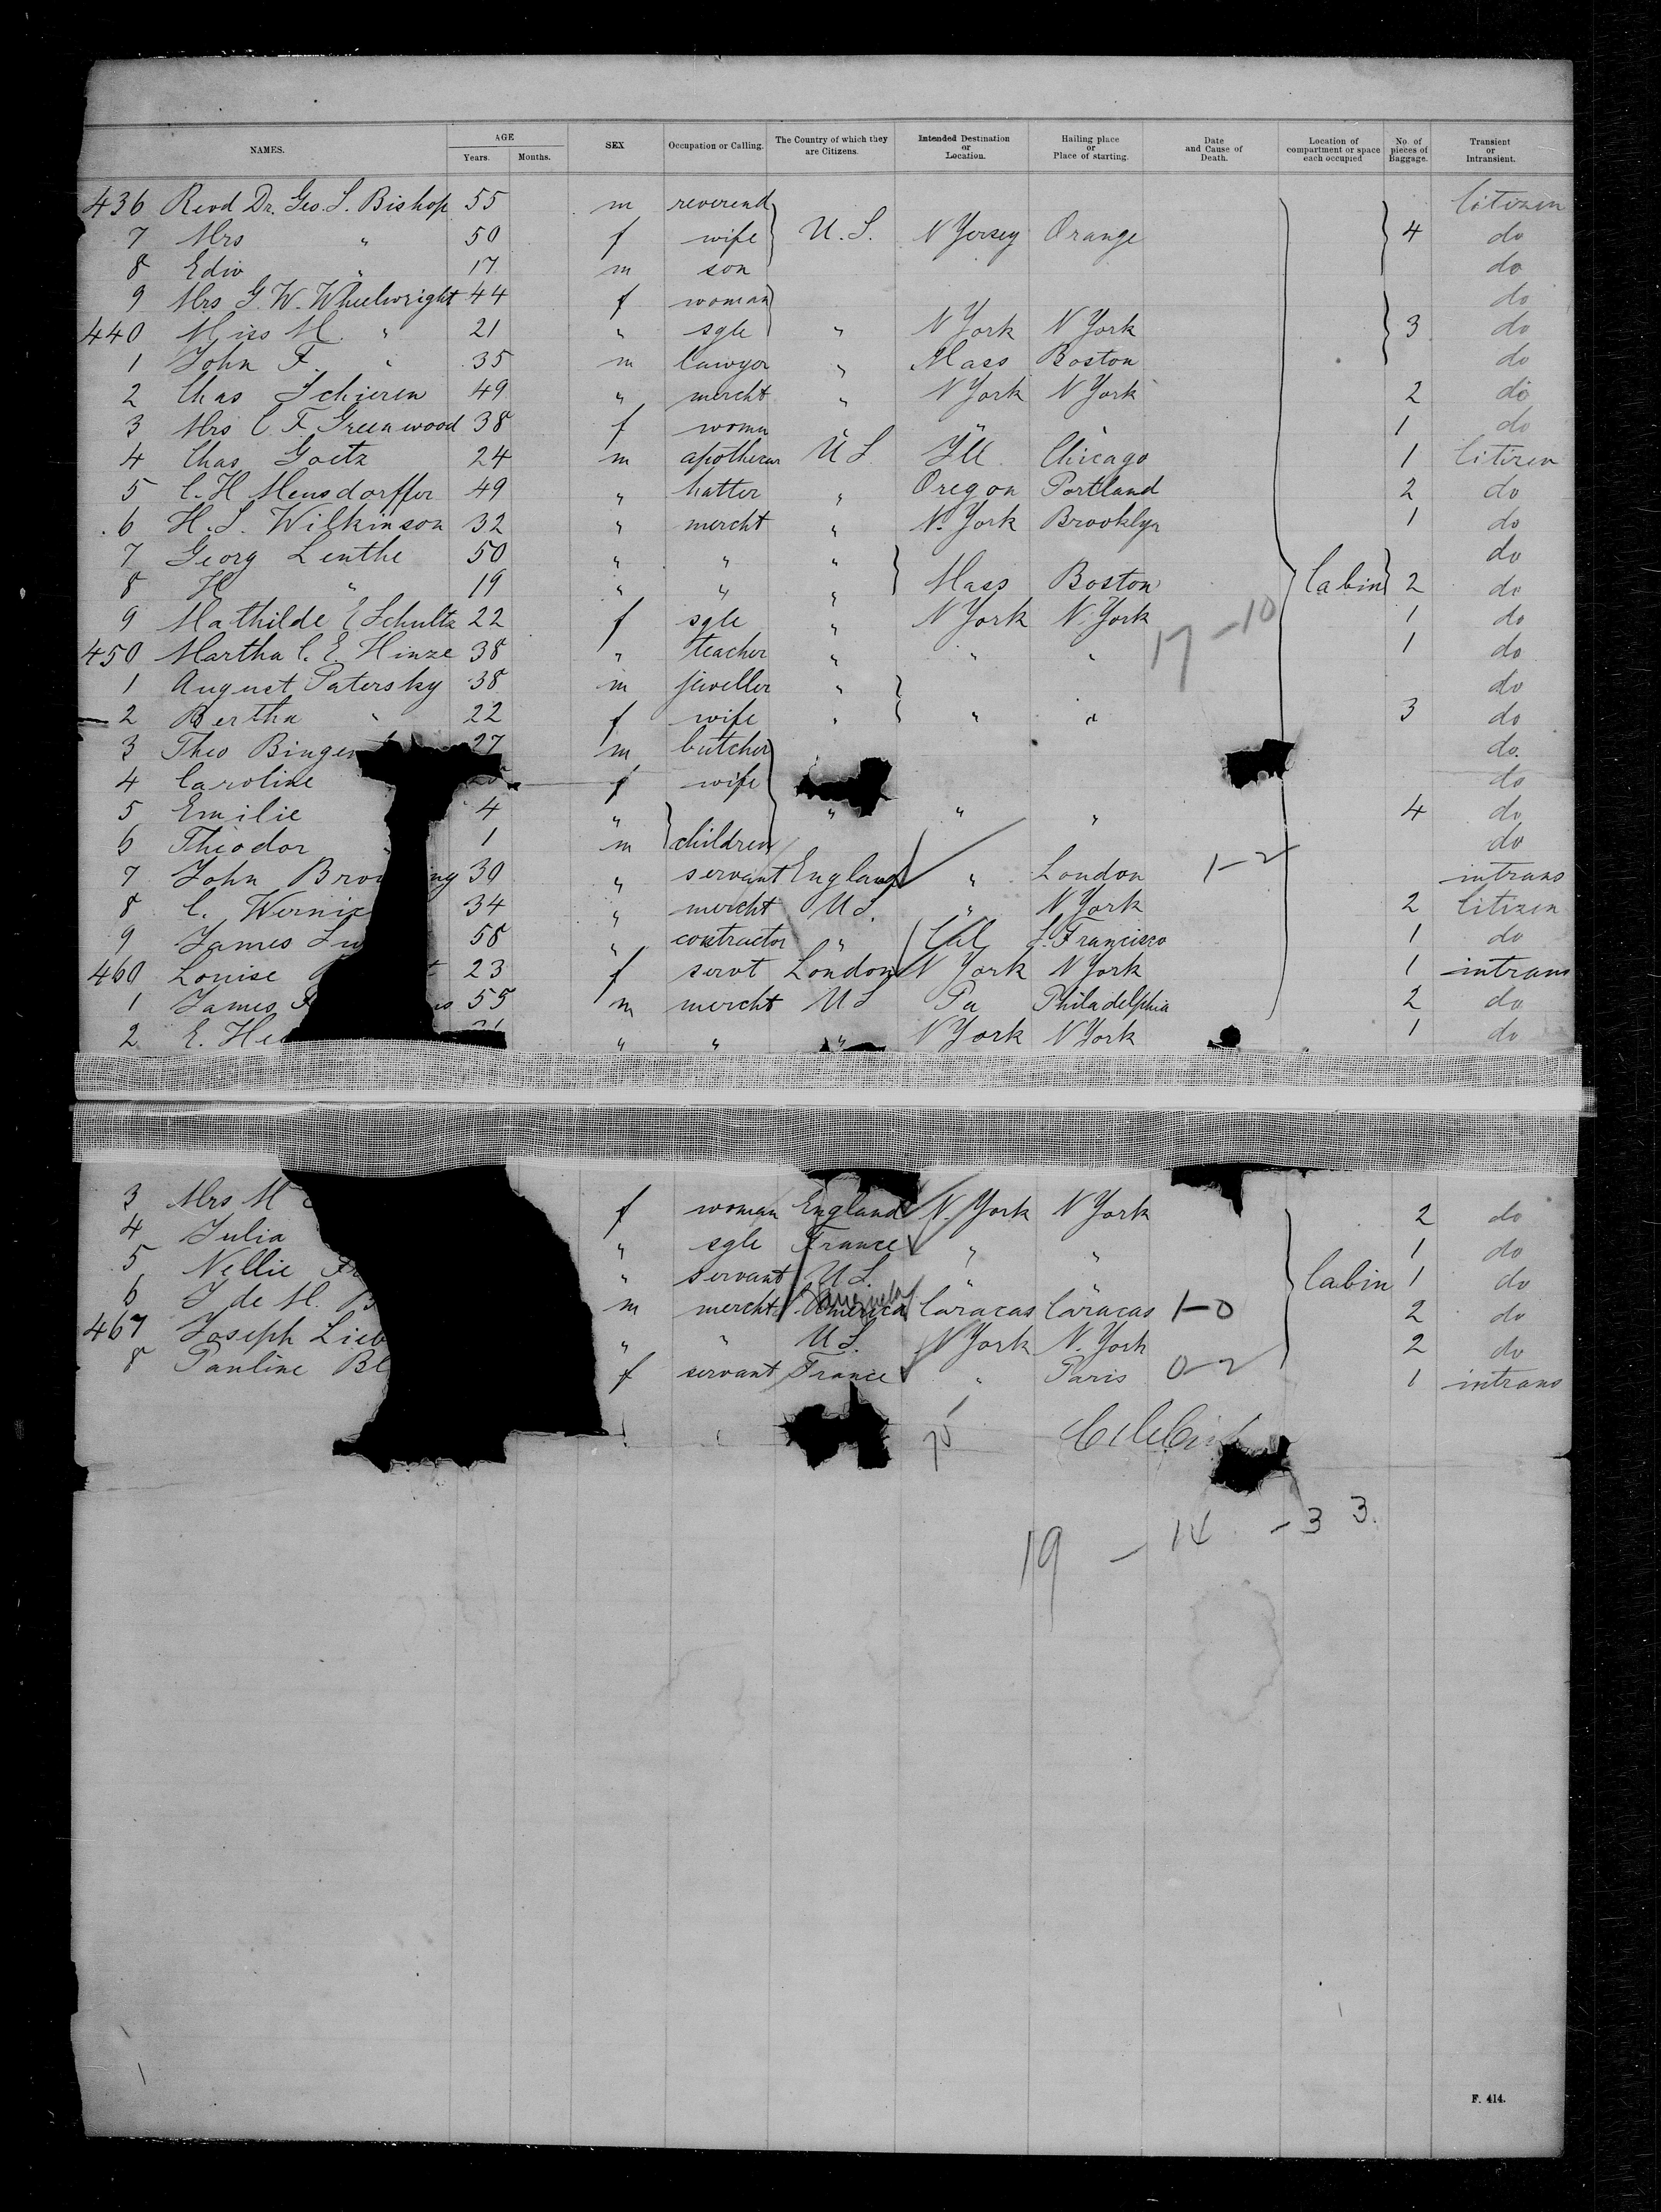 NAMES. AGE Years. Months. SEX Occupation or Calling. The Country of which they are Citizens. Intended Destination or Location. Hailing place or Place of starting. Date and Cause of Death. Location of compartment or space each occupied No. of pieces of Baggage. Transient or Intransient.
436 Revd Dr. Geo. S. Bishop 55 m reverend Citizen
7 Mrs " 50 f wife U.S. N Jersey Orange 4 do
8 Edw " 17 m son do
9 Mrs G. W. Wheelwright 44 f woman do
440 Miss M. " 21 " sgle " N York N York 3 do
1 John F. " 35 m lawyer " Mass Boston do
2 Chas Schieren 49 " mercht " N York N York 2 do
3 Mrs C. F. Greenwood 38 f woman " " " 1 do
4 Chas Goetz 24 m U S Ill Chicago 1 Citizen
5 C. H Mensdorffer 49 " hatter " Oregon Portland 2 do
6 H. S. Wilkinson 32 " mercht " N. York Brooklyn 1 do
7 Georg Lenthe 50 " " " do
8 H " 19 " " " Mass Boston Cabin 2 do
9 Mathilde E Schultz 22 f sgle " N York N. York 1 do
17-10
450 Martha C. E. Hinze 38 " teacher " " " 1 do
1 August Patersky 38 m jeweller " do
2 Bertha " 22 f wife " " " 3 do
3 Theo 27 m butcher do
4 Caroline f wife do
5 Emilie 4 " " " " 4 do
6 Theodor 1 m children do
7 John 30 " servant England " London 1-2 intrans
8 C. 34 " mercht U S. " N York 2 Citizen
9 James 58 " contractor " Cal S. Francisco 1 do
460 Louise 23 f servt London N York N York 1 intrans
1 James 55 m mercht U S Pa Philadelphia 2 do
2 E. " " " N York N York 1 do
3 Mrs M f woman England N. York N York 2 do
4 Julia " sgle France " " 1 do
5 Nellie " servant U S. " " Cabin 1 do
6 J de M. m mercht America Caracas Caracas 1-0 2 do
467 Joseph " " U S. N York N. York 2 do
8 Pauline f servant France " Paris 0-2 1 intrans
19 - 14 - 33.
F. 414.